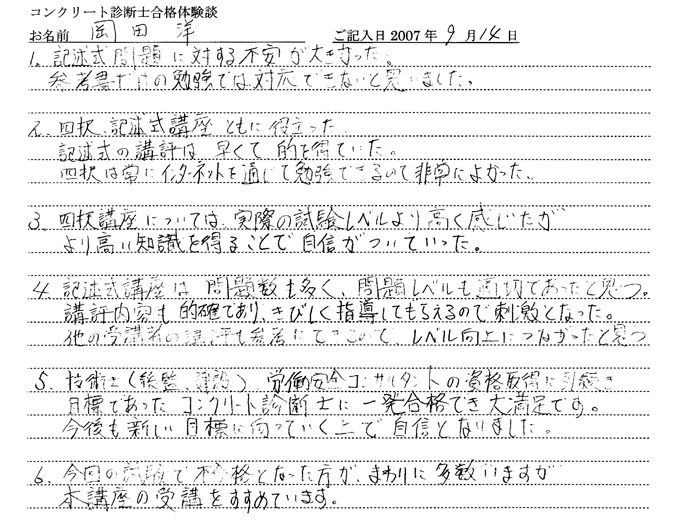 コンクリート診断士合格体験談
お名前 岡田 洋 ご記入日2007年9月14日
1. 記述式問題に対する不安が大きかった。
参考書だけの勉強では対応できないと思いました。
2. 四択、記述式講座ともに役立った。
記述式の講評は早くて的を得ていた。
四択は常にインターネットを通じて勉強できるので非常によかった。
3. 四択講座については、実際の試験レベルより高く感じたが
より高い知識を得ることで自信がついていった。
4. 記述式講座は問題数も多く、問題レベルも適切であったと思う。
講評内容も的確であり、きびしく指導してもらえるので刺激となった。
他の受講者の講評も参考にできるので、レベル向上につながったと思う
5. 技術士(総監、建設)労働安全コンサルタントの資格取得に引続き
目標であったコンクリート診断士に一発合格でき大満足です。
今後も新しい目標に向っていく上で自信となりました。
6. 今回の試験で不合格となった方が、まわりに多数いますが
本講座の受講をすすめています。